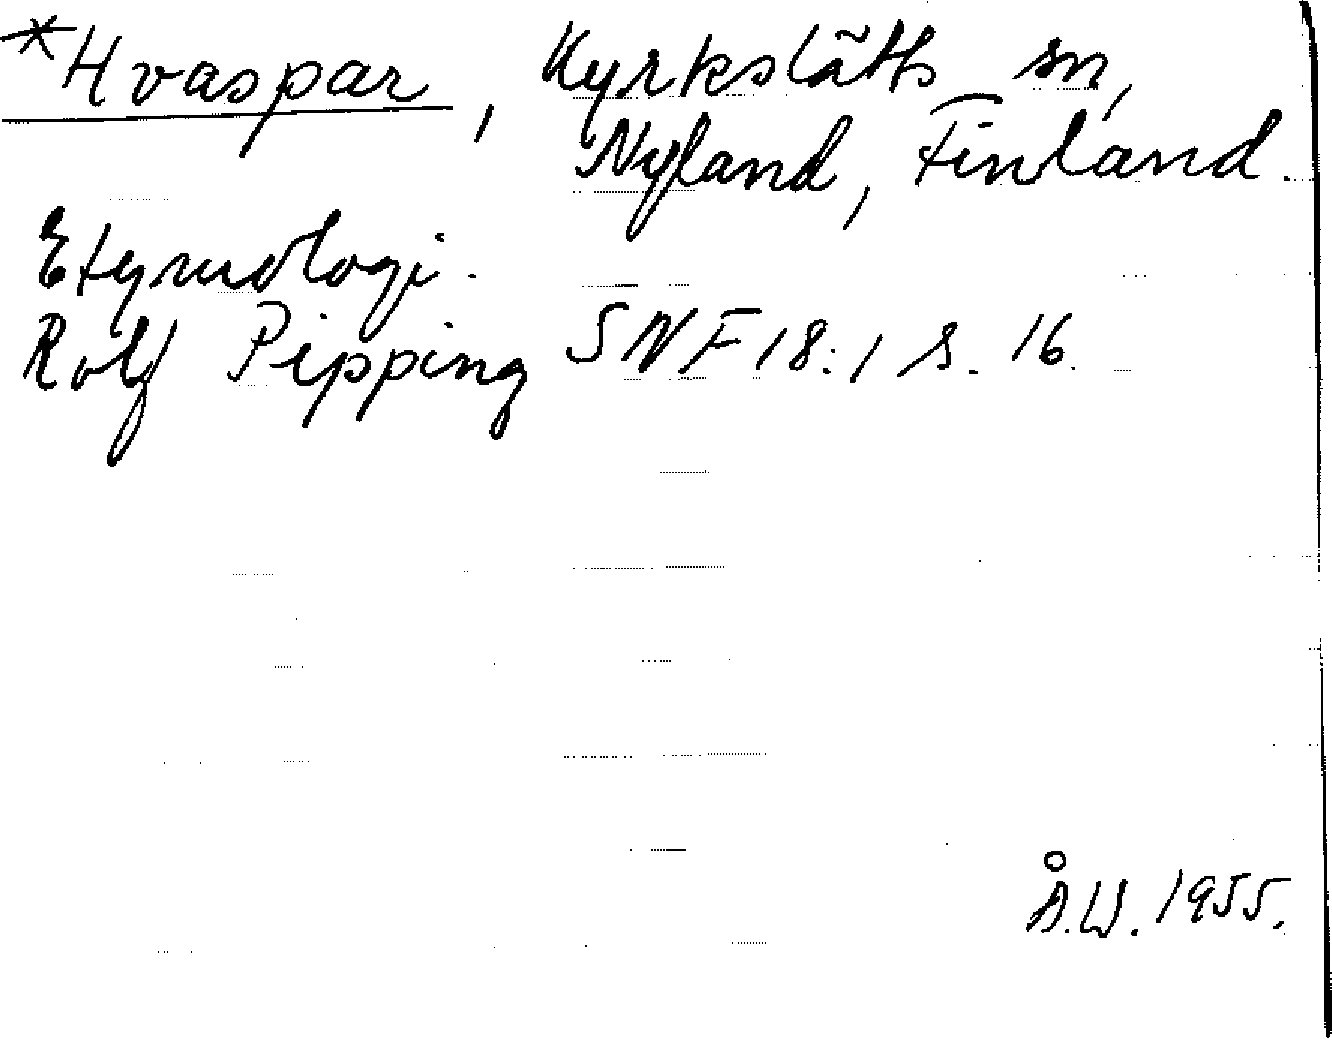 *Hvaspar, Kyrkslätts sn,
Nyland, Finland.
Etymologi.
Rolf Pipping SNF 18:1 s. 16.
Å.W. 1955.